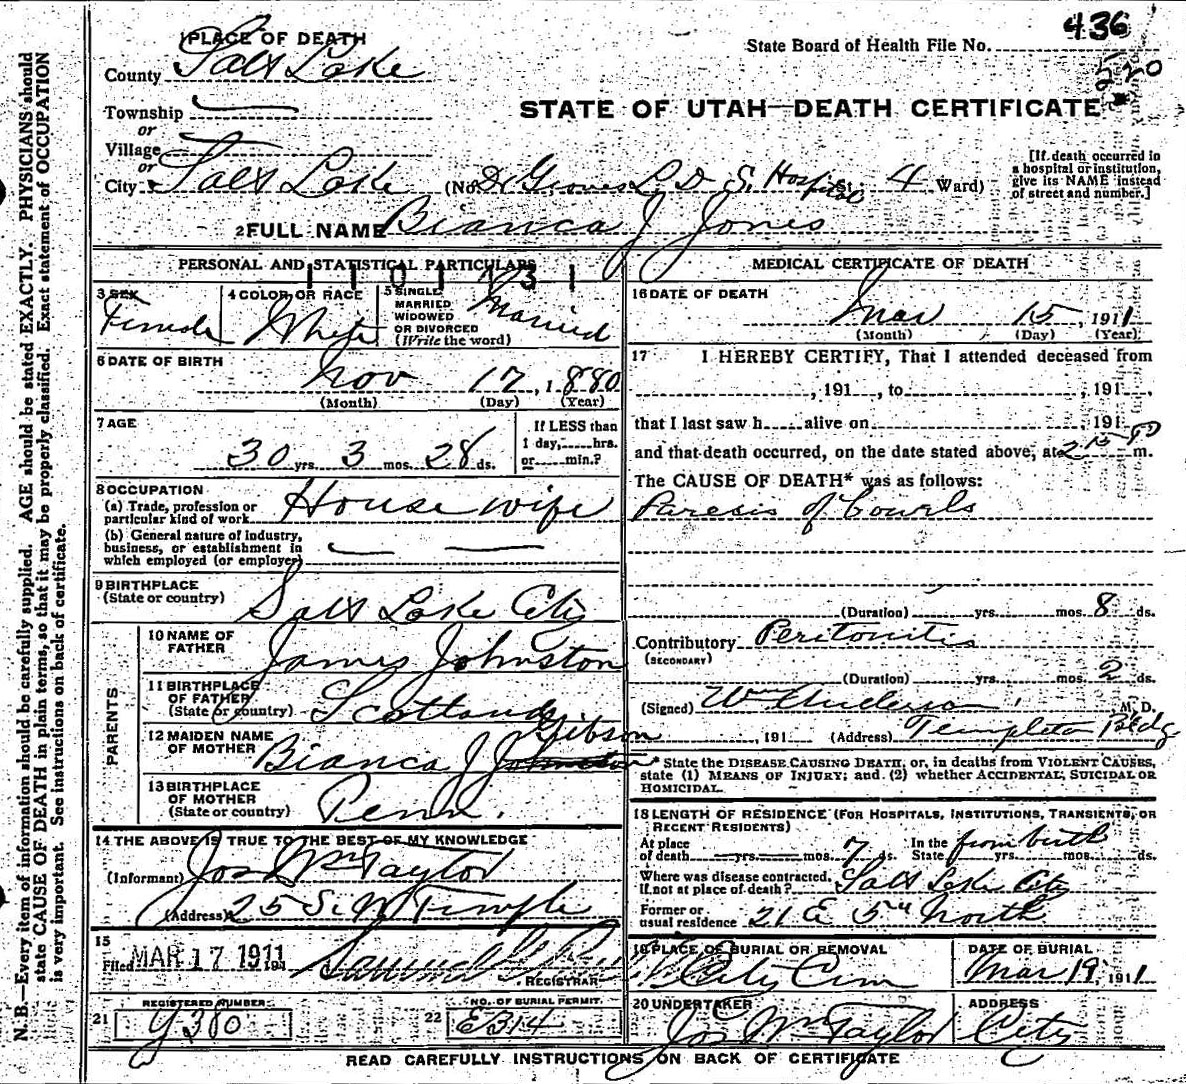 436
State Board of Health File No.
520
1 PLACE OF DEATH
County Salt Lake
STATE OF UTAH—DEATH CERTIFICATE
Township
or
Village
or
City Salt Lake (No. Dr Groves L. D. S. Hospital St. 4 Ward)
[If death occurred in
a hospital or institution,
give its NAME instead
of street and number.]
2 FULL NAME Bianca J Jones
PERSONAL AND STATISTICAL PARTICULARS
3 SEX
Female
4 COLOR OR RACE
White
5 SINGLE
MARRIED
WIDOWED
OR DIVORCED
(Write the word)
Married
6 DATE OF BIRTH
Nov 17, 1880
(Month) (Day) (Year)
7 AGE
30 yrs. 3 mos. 28 ds.
If LESS than
1 day, hrs.
or min.?
8 OCCUPATION
(a) Trade, profession or
particular kind of work House wife
(b) General nature of industry,
business, or establishment in
which employed (or employer)
9 BIRTHPLACE
(State or country) Salt Lake City
PARENTS
10 NAME OF
FATHER James Johnston
11 BIRTHPLACE
OF FATHER
(State or country) Scotland
12 MAIDEN NAME
OF MOTHER Bianca J Johnston Gibson
13 BIRTHPLACE
OF MOTHER
(State or country) Penn.
14 THE ABOVE IS TRUE TO THE BEST OF MY KNOWLEDGE
(Informant) Jos Wm Taylor
(Address) 25 S. W Temple
15
Filed MAR 17 1911 191
REGISTRAR
REGISTERED NUMBER
21 G380
NO. OF BURIAL PERMIT.
22 E314
MEDICAL CERTIFICATE OF DEATH
16 DATE OF DEATH
Mar 15, 1911
(Month) (Day) (Year)
17 I HEREBY CERTIFY, That I attended deceased from
, 191 , to , 191
that I last saw h alive on , 191
and that death occurred, on the date stated above, at 2 15 P m.
The CAUSE OF DEATH* was as follows:
Paresis of bowels
(Duration) yrs. mos. 8 ds.
Contributory Peritonitis
(SECONDARY)
(Duration) yrs. mos. 2 ds.
(Signed) Wm Anderson, M. D.
, 191 (Address) Templeton Bldg
* State the DISEASE CAUSING DEATH, or, in deaths from VIOLENT CAUSES,
state (1) MEANS OF INJURY; and (2) whether ACCIDENTAL, SUICIDAL OR
HOMICIDAL.
18 LENGTH OF RESIDENCE (FOR HOSPITALS, INSTITUTIONS, TRANSIENTS, OR
RECENT RESIDENTS)
At place
of death yrs. mos. 7 ds. In the
State from birth yrs. mos. ds.
Where was disease contracted,
if not at place of death? Salt Lake City
Former or
usual residence 21 E 5th North
19 PLACE OF BURIAL OR REMOVAL
City Cem
DATE OF BURIAL
Mar 19, 1911
20 UNDERTAKER
Jos Wm Taylor
ADDRESS
City
READ CAREFULLY INSTRUCTIONS ON BACK OF CERTIFICATE
N. B.—Every item of information should be carefully supplied. AGE should be stated EXACTLY. PHYSICIANS should
state CAUSE OF DEATH in plain terms, so that it may be properly classified. Exact statement of OCCUPATION
is very important. See instructions on back of certificate.